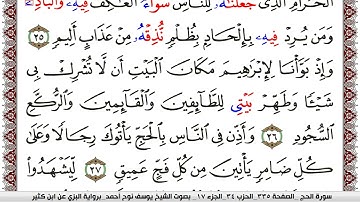 الْحَرَامِ الَّذِى جَعَلْنَٰهُ لِلنَّاسِ سَوَآءٌ الْعَٰكِفُ فِيهِۦ وَالْبَادِۦ
وَمَن يُرِدْ فِيهِۦ بِإِلْحَادٍ بِظُلْمٍ نُّذِقْهُۥ مِنْ عَذَابٍ أَلِيمٍ ٢٥
وَإِذْ بَوَّأْنَا لِإِبْرَٰهِيمَ مَكَانَ الْبَيْتِ أَن لَّا تُشْرِكْ بِى
شَيْـًٔا وَطَهِّرْ بَيْتِى لِلطَّآئِفِينَ وَالْقَآئِمِينَ وَالرُّكَّعِ
السُّجُودِ ٢٦ وَأَذِّن فِى النَّاسِ بِالْحَجِّ يَأْتُوكَ رِجَالًا وَعَلَىٰ
كُلِّ ضَامِرٍ يَأْتِينَ مِن كُلِّ فَجٍّ عَمِيقٍ ٢٧ لِّيَشْهَدُوا
سورة الحج _ الصفحة ٣٣٥_ الحزب ٣٤_ الجزء ١٧_ بصوت الشيخ يوسف نوح أحمد_ برواية البزي عن ابن كثير